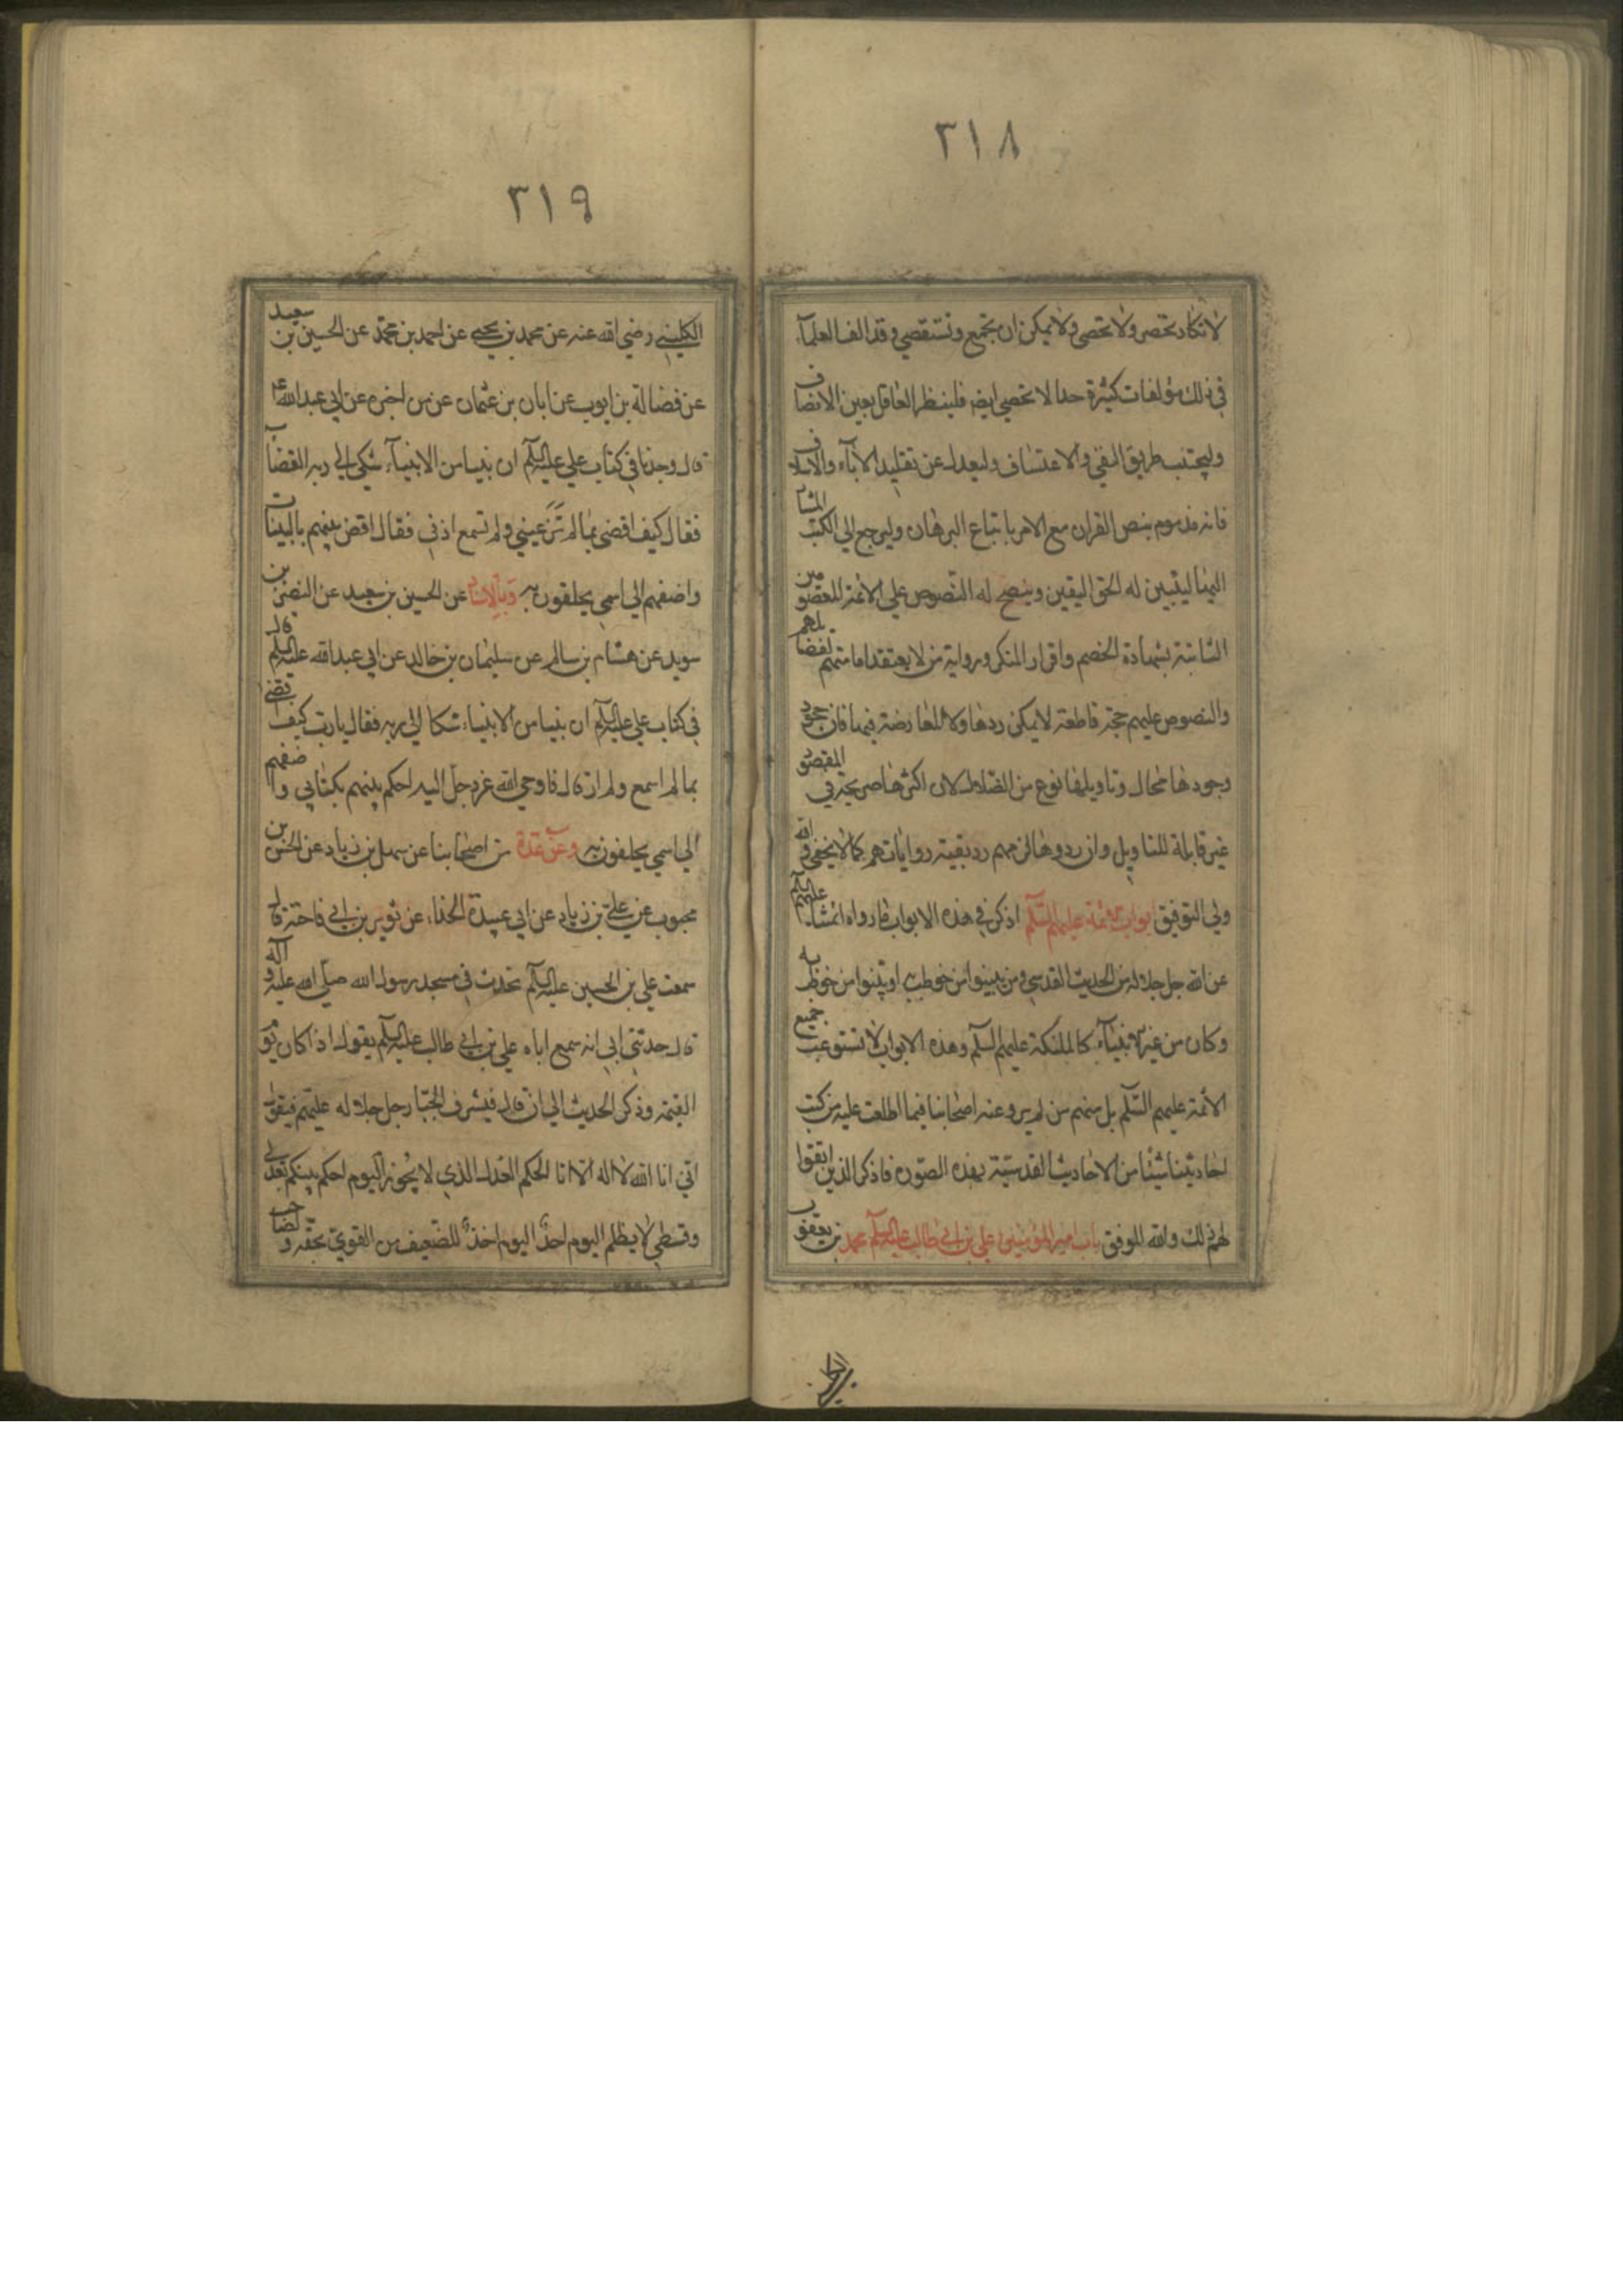 ٣١٨
لا تكاد تحصر ولا تحصى ولا يمكن ان تجمع وتستقصي وقد الف العلمآء
في ذلك مؤلفات كثيرة جدا لا تحصي ايضا فلينظر العاقل بعين الانصاف
وليجتنب طريق البغي والاعتساف وليعدل عن تقليد الابآء والاسلاف
فانه مذموم بنص القران مع الامر باتباع البرهان وليرجع الي الكتب المشار
اليها ليتبين له الحق اليقين ويتضح له النصوص علي الائمة المعصومين
الثابتة بشهادة الخصم واقرار المنكر ورواية من لا يعتقد امامتهم
والنصوص عليهم حجة قاطعة لا يمكن ردها ولا المعارضة فيها فان جحود
وجودها محال وتاويلها نوع من الضلال لان اكثرها صريحة في المقصود
غير قابلة للتاويل وان ردوها لزمهم رد بقية رواياتهم كما لا يخفى والله
ولي التوفيق ابواب الائمة عليهم السلم اذكر في هذه الابواب ما رواه ائمتنا عليهم السلم
عن الله جل جلاله من الحديث القدسي ومن بينوا من خوطب به او بينوا من خوطب به
وكان من غير الانبيآء كالملئكة عليهم السلم وهذه الابواب لا تستوعب جميع
الائمة عليهم السلم بل منهم من لم يرو عنه اصحابنا فيما اطلعت عليه من كتب
احاديثنا شيئا من الاحاديث القدسية بهذه الصورة فاذكر الذين اتفقوا
لهم ذلك والله الموفق باب امير المؤمنين علي بن ابي طالب عليه السلم محمد بن يعقوب
٣١٩
الكليني رضي الله عنه عن محمد بن يحيى عن احمد بن محمد عن الحسين بن سعيد
عن فضالة بن ايوب عن ابان بن عثمان عن من اخبره عن ابي عبد الله ع
قال وجدنا في كتاب علي عليه السلم ان نبيا من الانبيآء شكى الي ربه القضاب
فقال كيف اقضي بما لم تر عيني ولم تسمع اذني فقال اقض بينهم بالبينات
واضفهم الي اسمي يحلفون به وبالاسناد عن الحسين بن سعيد عن النضر بن
سويد عن هشام بن سالم عن سليمان بن خالد عن ابي عبد الله عليه السلم قال
في كتاب علي عليه السلم ان نبيا من الانبياء شكا الي ربه فقال يا رب كيف اقضي
بما لم اسمع ولم ار قال فاوحي الله عز وجل اليه احكم بينهم بكتابي واضفهم
الي اسمي يحلفون به وعن عدة من اصحابنا عن سهل بن زياد عن الحسن بن
محبوب عن علي بن زياد عن ابي عبيدة الحذاء عن ثوير بن ابي فاختة قال
سمعت علي بن الحسين عليه السلم تحدث في مسجد رسول الله صلي الله عليه وآله
قال حدثني ابي انه سمع اباه علي بن ابي طالب عليه السلم يقول اذا كان يوم
القيمة وذكر الحديث الي ان قال فيشرف الجبار جل جلاله عليهم فيقول
اني انا الله لا اله الا انا الحكم العدل الذي لا يجور اليوم احكم بينكم بعدلي
وقسطي لا يظلم اليوم احد اليوم اخذ للضعيف من القوي بحقه ولصاحب